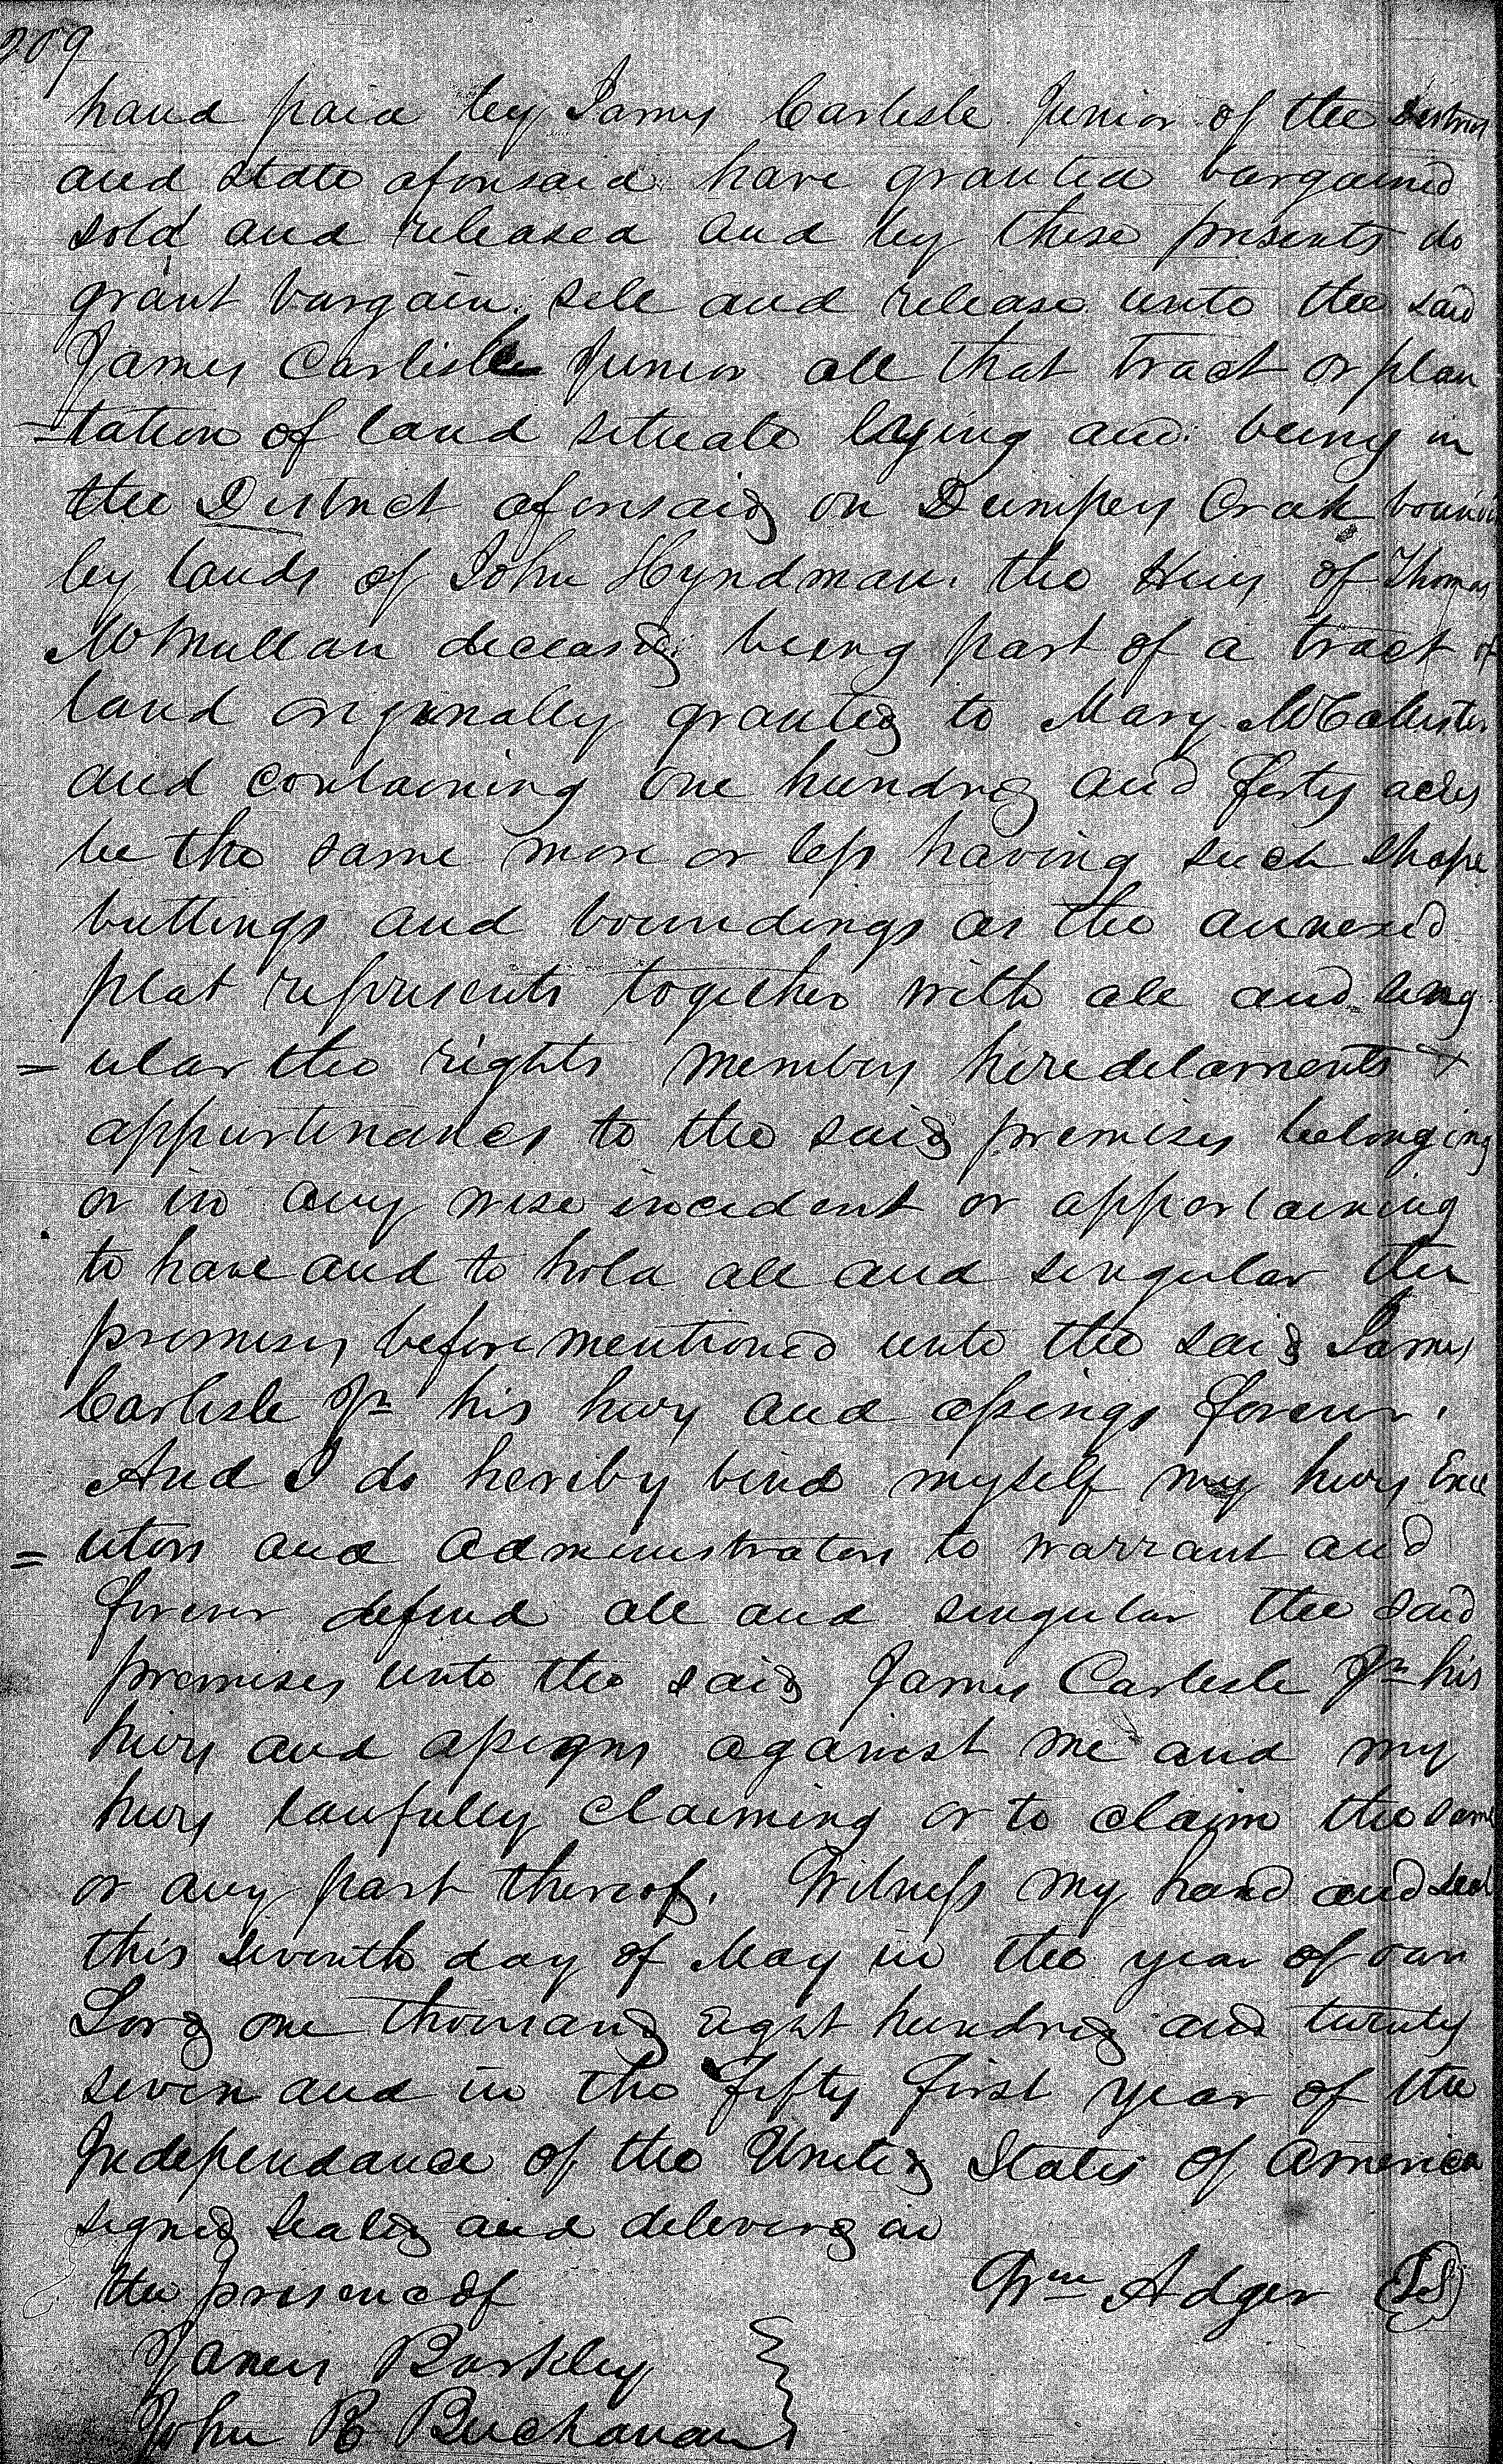 209
hand paid by James Carlisle Junior of the District
and State aforesaid have granted bargained
sold and released and by these presents do
grant bargain sell and release unto the said
James Carlisle Junior all that tract or plan
-tation of land situate laying and being in
the District aforesaid on Dumpers Creek bound
by lands of John Hyndman. the Heirs of Thomas
McMullan deceased being part of a tract of
land originally granted to Mary McCallister
and containing one hundred and forty acres
be the same more or less having such shape
buttings and boundings as the annexed
plat represents together with all and sing
= ular the rights members heredelaments &
appurtenances to the said premises belonging
or in any wise incedent or appertaining
to have and to hold all and singular the
premises before mentioned unto the said James
Carlisle Jr his heirs and assings forever.
And I do hereby bind myself my heirs Exec
= utors and administrators to warrant and
forever defend all and singular the said
premises unto the said James Carlisle Jr his
heirs and assigns against me and my
heirs laufully claiming or to claim the same
or any part thereof. Witness my hand and seal
this seventh day of May in the year of our
Lord one thousand eight hundred and twenty
seven and in the fifty first year of the
Independance of the United States of America
signed sealed and delivered in
the presence of Wm Adger (LS)
James Barkley
John R Buchanan